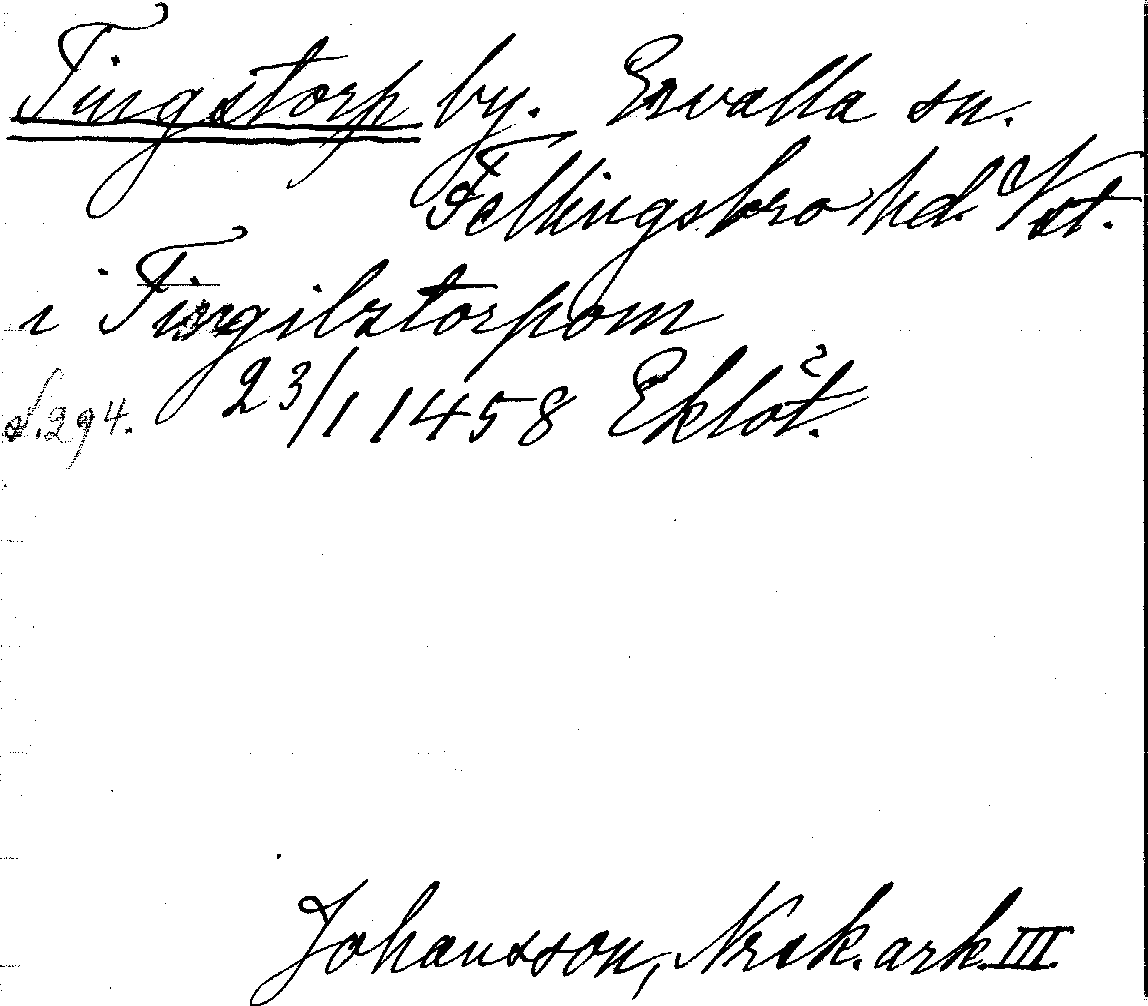 Tingstorp by. Ervalla sn.
Fellingsbro hd. Vst.
i Tingilztorpom
s. 294. 23/1 1458 Eklöt.
Johansson, Nrsk. ark. III.